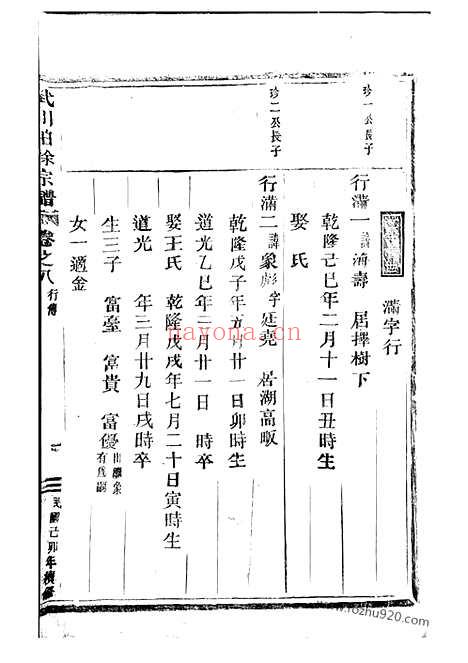 滿字行
珍一公長子
行滿一諱濟壽 居擇樹下
乾隆己巳年二月十一日丑時生
娶 氏
珍二公長子
行滿二諱象彪字廷堯 居湖高畈
乾隆戊子年五月廿一日卯時生
道光乙巳年三月廿一日 時卒
娶王氏 乾隆戊戌年七月二十日寅時生
道光 年三月廿九日戌時卒
生三子 富臺 富貴 富優出繼象有爲嗣
女一適金
武川柏徐宗譜 卷之八 行傳
民國己卯年續修
nayona.cn
www.rozhu789.com